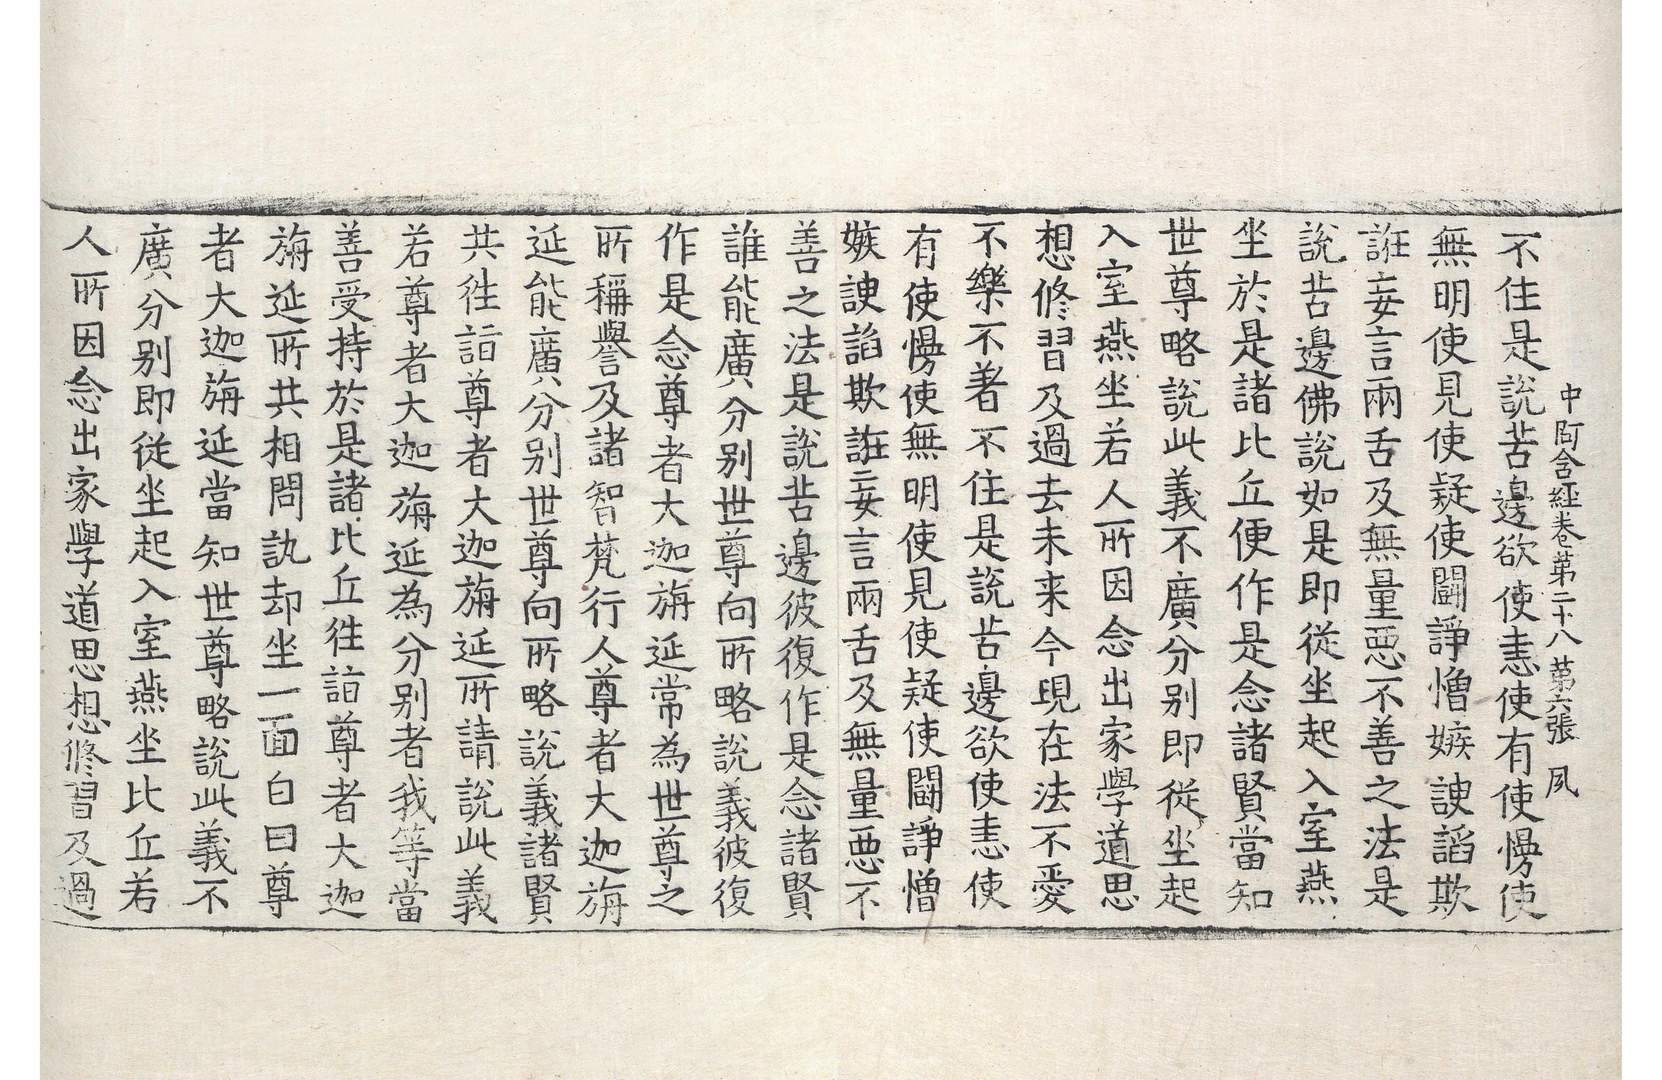 中阿含經卷第二十八 第六張 夙
不住是說苦邊欲使恚使有使慢使
無明使見使疑使鬪諍憎嫉諛諂欺
誑妄言兩舌及無量惡不善之法是
說苦邊佛說如是即從坐起入室燕
坐於是諸比丘便作是念諸賢當知
世尊略說此義不廣分別即從坐起
入室燕坐若人所因念出家學道思
想修習及過去未来今現在法不愛
不樂不著不住是說苦邊欲使恚使
有使慢使無明使見使疑使鬪諍憎
嫉諛諂欺誑妄言兩舌及無量惡不
善之法是說苦邊彼復作是念諸賢
誰能廣分别世尊向所略說義彼復
作是念尊者大迦旃延常為世尊之
所稱譽及諸智梵行人尊者大迦旃
延能廣分别世尊向所略說義諸賢
共徃詣尊者大迦旃延所請說此義
若尊者大迦旃延為分别者我等當
善受持於是諸比丘徃詣尊者大迦
旃延所共相問訊却坐一面白曰尊
者大迦旃延當知世尊略說此義不
廣分别即從坐起入室燕坐比丘若
人所因念出家學道思想修習及過